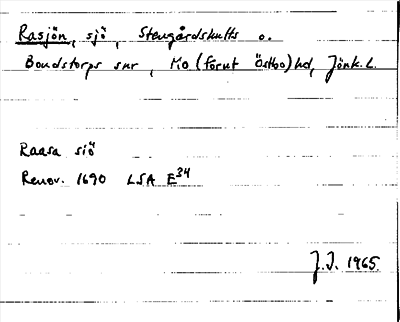 Rasjön, sjö, Stengårdshults o.
Bondstorps snr, Mo (förut Östbo) hd, Jönk. L.
Raasa siö
Renov. 1690 LSA E34
J.I. 1965.